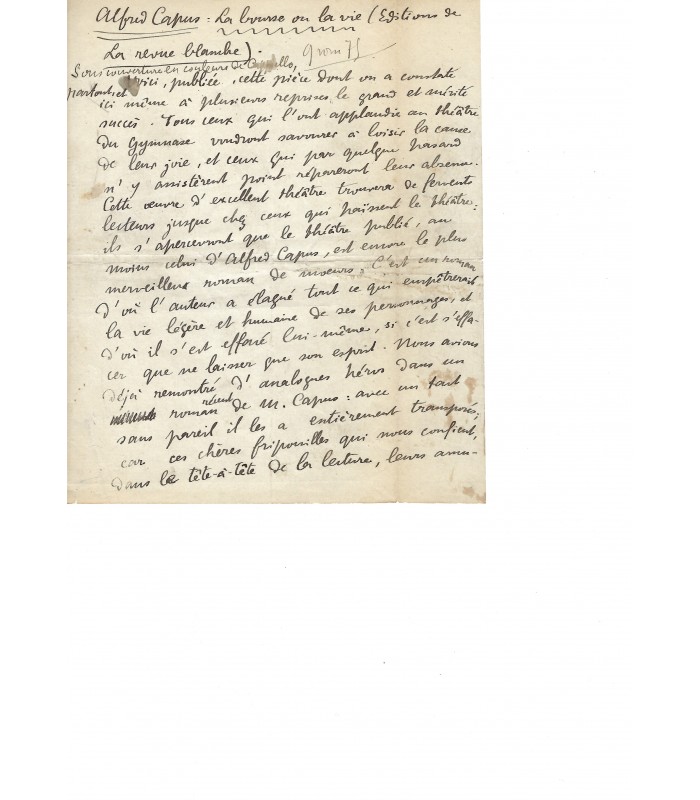 Alfred Capus : La bourse ou la vie (Editions de
La revue blanche).
Sous couverture en couleurs de Cappiello,
partout, et
voici, publiée, cette pièce dont on a constaté
ici même à plusieurs reprises le grand et mérité
succès. Tous ceux qui l'ont applaudie au théâtre
du Gymnase voudront savourer à loisir la cause
de leur joie, et ceux qui par quelque hasard
n'y assistèrent point répareront leur absence.
Cette œuvre d'excellent théâtre trouvera de fervents
lecteurs jusque chez ceux qui haïssent le théâtre :
ils s'apercevront que le théâtre publié, au
moins celui d'Alfred Capus, est encore le plus
merveilleux roman de mœurs. C'est un roman
d'où l'auteur a élagué tout ce qui empêtrerait
la vie légère et humaine de ses personnages, et
d'où il s'est effacé lui-même, si c'est s'effa-
cer que ne laisser que son esprit. Nous avions
déjà rencontré d'analogues héros dans un
roman récent de M. Capus : avec un tact
sans pareil il les a entièrement transposés ;
car ces chères fripouilles qui nous confient,
dans le tête-à-tête de la lecture, leurs amu-